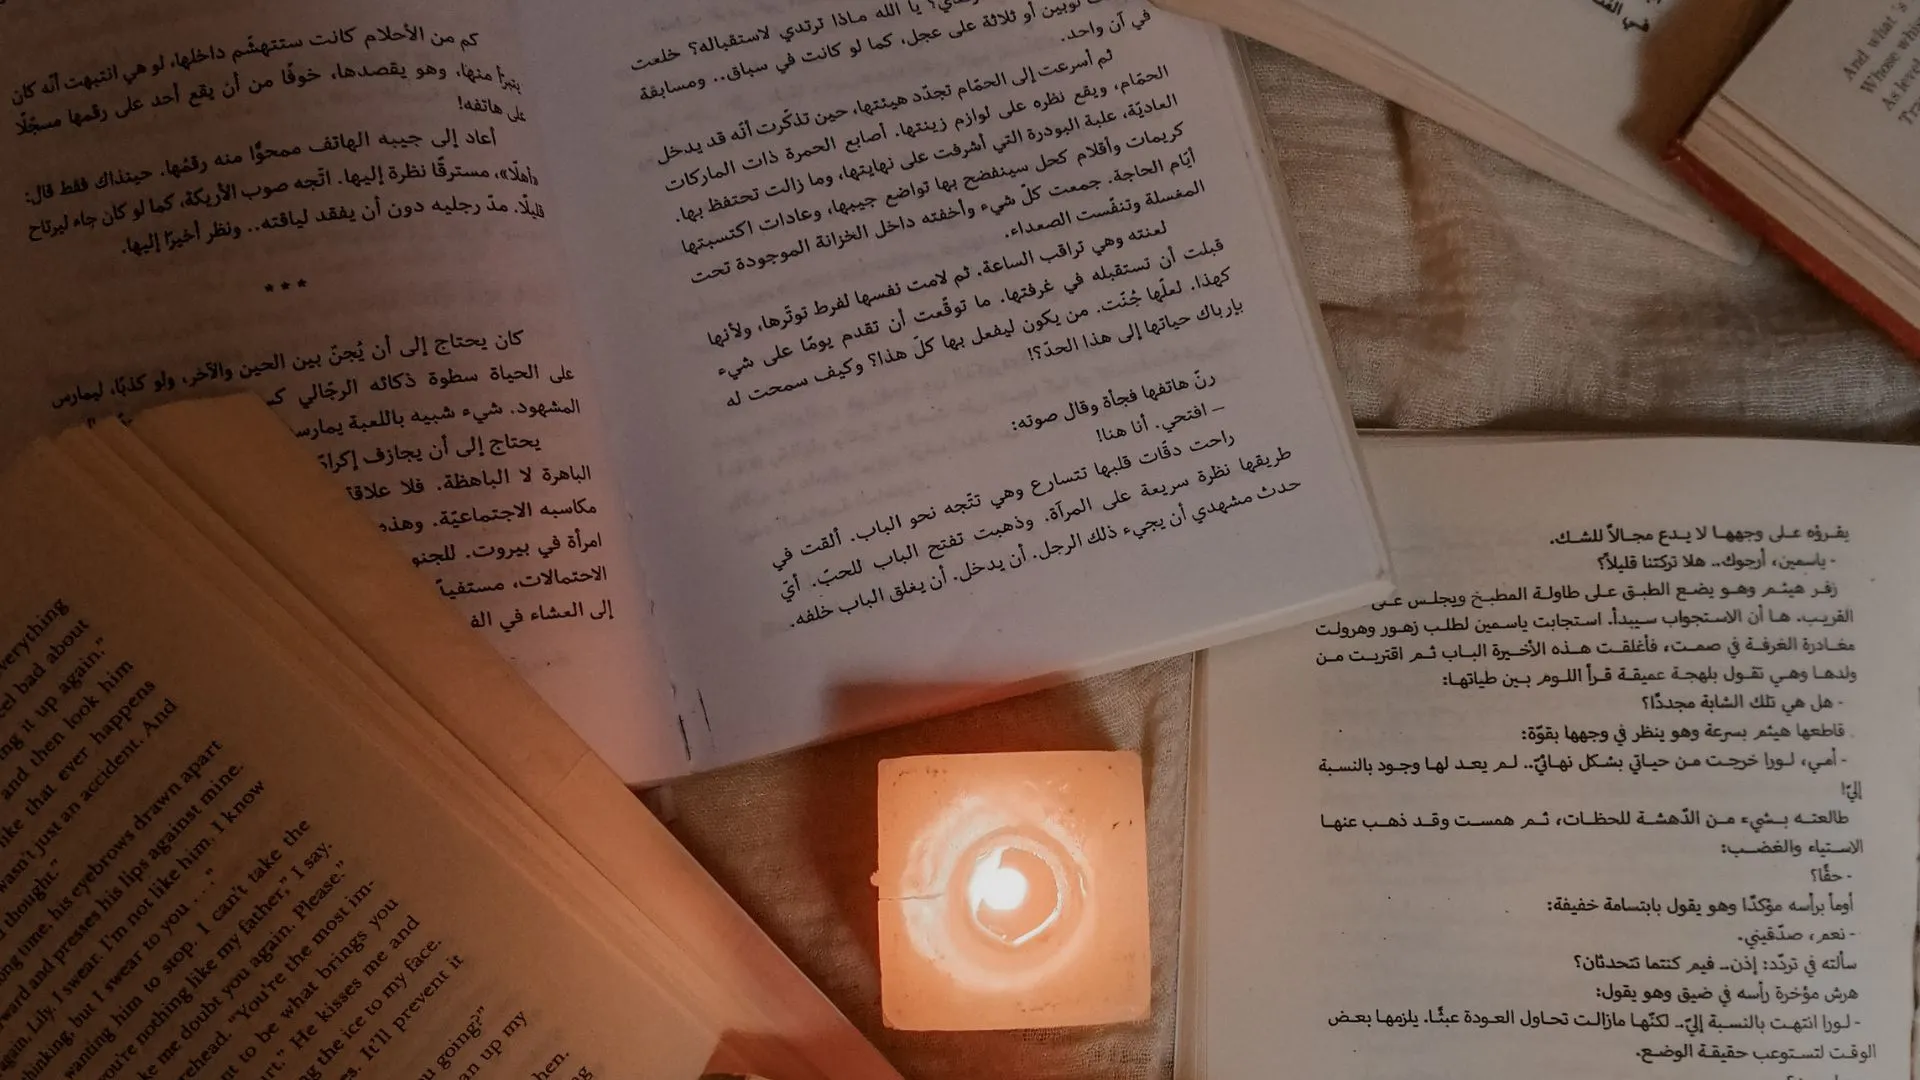 كم من الأحلام كانت ستتهشّم داخلها، لو هي انتبهت أنّه كان
يتبرأ منها، وهو يقصدها، خوفًا من أن يقع أحد على رقمها مسجّلًا
على هاتفه!
أعاد إلى جيبه الهاتف ممحوًّا منه رقمُها. حينذاك فقط قال:
«أهلًا»، مسترقًا نظرة إليها. اتّجه صوب الأريكة، كما لو كان جاء ليرتاح
قليلًا. مدّ رجليه دون أن يفقد لياقته.. ونظر أخيرًا إليها.
***
كان يحتاج إلى أن يُجنّ بين الحين والآخر، ولو كذبًا، ليمارس
على الحياة سطوة ذكائه الرجّالي
المشهود. شيء شبيه باللعبة يمارس
يحتاج إلى أن يجازف
الباهرة لا الباهظة. فلا
مكاسبه الاجتماعيّة. وهذه
امرأة في بيروت.
الاحتمالات،
إلى العشاء في
يا الله ماذا ترتدي لاستقباله؟ خلعت
ثوبين أو ثلاثة على عجل، كما لو كانت في سباق.. ومسابقة
في آن واحد.
ثم أسرعت إلى الحمّام تجدّد هيئتها، حين تذكّرت أنّه قد يدخل
الحمّام، ويقع نظره على لوازم زينتها. أصابع الحمرة ذات الماركات
العاديّة، علبة البودرة التي أشرفت على نهايتها، وما زالت تحتفظ بها.
كريمات وأقلام كحل سينفضح بها تواضع جيبها، وعادات اكتسبتها
أيّام الحاجة. جمعت كلّ شيء وأخفته داخل الخزانة الموجودة تحت
المغسلة وتنفّست الصعداء.
لعنته وهي تراقب الساعة. ثم لامت نفسها لفرط توتّرها، ولأنها
قبلت أن تستقبله في غرفتها. ما توقّعت أن تقدم يومًا على شيء
كهذا. لعلّها جُنّت. من يكون ليفعل بها كلّ هذا؟ وكيف سمحت له
بإرباك حياتها إلى هذا الحدّ؟!
رنّ هاتفها فجأة وقال صوته:
– افتحي. أنا هنا!
راحت دقّات قلبها تتسارع وهي تتّجه نحو الباب. ألقت في
طريقها نظرة سريعة على المرآة. وذهبت تفتح الباب للحبّ. أيّ
حدث مشهدي أن يجيء ذلك الرجل. أن يدخل. أن يغلق الباب خلفه.
And what's
Whose
As level
يقرؤه على وجهها لا يدع مجالاً للشك.
- ياسمين، أرجوك.. هلا تركتنا قليلاً؟
زفر هيثم وهو يضع الطبق على طاولة المطبخ ويجلس على
القريب. ها أن الاستجواب سيبدأ. استجابت ياسمين لطلب زهور وهرولت
مغادرة الغرفة في صمت، فأغلقت هذه الأخيرة الباب ثم اقتربت من
ولدها وهي تقول بلهجة عميقة قرأ اللوم بين طياتها:
- هل هي تلك الشابة مجددًا؟
قاطعها هيثم بسرعة وهو ينظر في وجهها بقوّة:
- أمي، لورا خرجت من حياتي بشكل نهائيّ.. لم يعد لها وجود بالنسبة
إليّ!
طالعته بشيء من الدّهشة للحظات، ثم همست وقد ذهب عنها
الاستياء والغضب:
- حقًّا؟
أومأ برأسه مؤكدًا وهو يقول بابتسامة خفيفة:
- نعم، صدّقيني.
سألته في تردّد: إذن.. فيم كنتما تتحدثان؟
هرش مؤخرة رأسه في ضيق وهو يقول:
- لورا انتهت بالنسبة إليّ.. لكنّها مازالت تحاول العودة عبثًا. يلزمها بعض
الوقت لتستوعب حقيقة الوضع.
everything
feel bad about
it up again."
and then look him
like that ever happens
wasn't just an accident. And
thought."
long time, his eyebrows drawn apart
and presses his lips against mine.
again, Lily. I swear. I'm not like him, I know
thinking, but I swear to you . . ."
wanting him to stop. I can't take the
you're nothing like my father," I say.
make me doubt you again. Please."
forehead. "You're the most im-
to be what brings you
He kisses me and
the ice to my face.
It'll prevent it
you going?"
up my